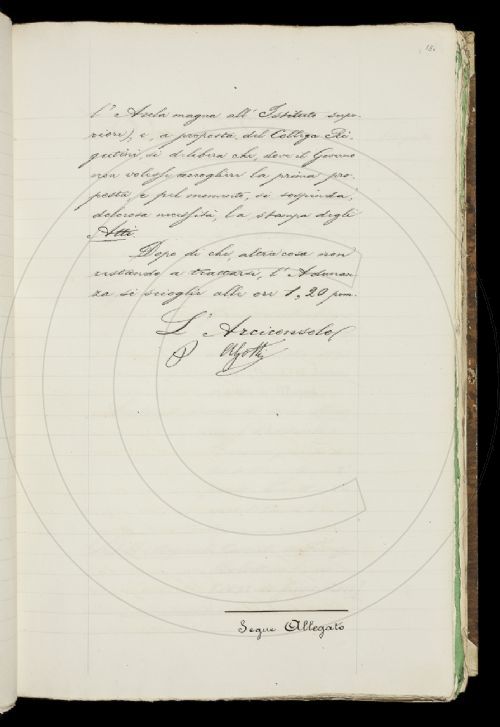 l'Aula magna all'Istituto supe-
riore), e, a proposta del Collega Ri-
gutini, si delibera che, dove il Governo
non volesse accogliere la prima pro-
posta, e pel momento, si sospenda,
dolorosa necessità, la stampa degli
Atti.
Dopo di che, altra cosa non
restando a trattarsi, l'Adunan-
za si scioglie alle ore 1,20 pom.
L'Arciconsolo
Segue Allegato